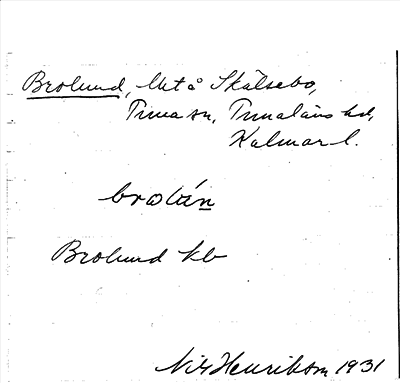 Brolund, Utå Skälsebo,
Tuna sn, Tunaläns hd,
Kalmar l.
brolún
Brolund kb
Nils Henrikson 1931